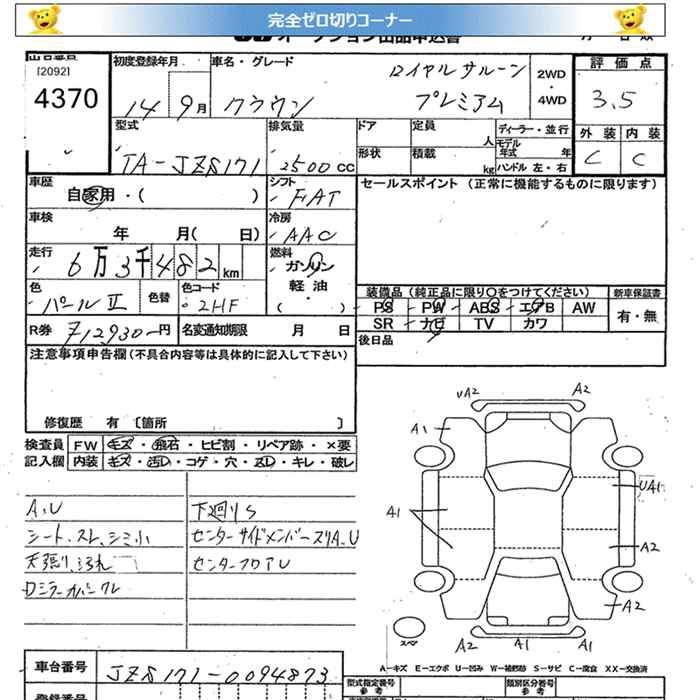 完全ゼロ切りコーナー
オークション出品申込書
出品番号
[2092]
4370
初度登録年月
14 9月
車名・グレード
クラウン
ロイヤルサルーン
プレミアム
2WD
・
4WD
評価点
3.5
外装 内装
C C
型式
TA-JZS171
排気量
2500 CC
ドア 定員 人
形状 積載 kg
ディーラー・並行
モデル年式 年
ハンドル 左・右
車歴
自家用・( )
シフト
FAT
セールスポイント (正常に機能するものに限ります)
車検
年 月( 日)
冷房
AAC
走行
6万3千482km
燃料
ガソリン
軽油
( )
色
パールⅡ
色替
色コード
2HF
装備品(純正品に限り○をつけてください) 新車保証書
PS PW ABS エアB AW 有・無
SR ナビ TV カワ
R券 712930-円
名変通知期限 月 日
後日品
注意事項申告欄(不具合内容等は具体的に記入して下さい)
修復歴 有 〔箇所 〕
検査員記入欄
FW キズ・飛石・ヒビ割・リペア跡・×要
内装 キズ・汚レ・コゲ・穴・スレ・キレ・破レ
A、U
シート、スレ、シミ小
天張り、汚れ
Dミラーカバークレ
下廻りS
センターサイドメンバースリA、U
センターフロアU
UA2 A2
A1
A1
UA1
A2
A2
A2 A1 A1
スペア
A―キズ E―エクボ U―凹み W―補修跡 S―サビ C―腐食 XX―交換済
車台番号
JZS171-0094873
型式指定番号 参考
類別区分番号 参考